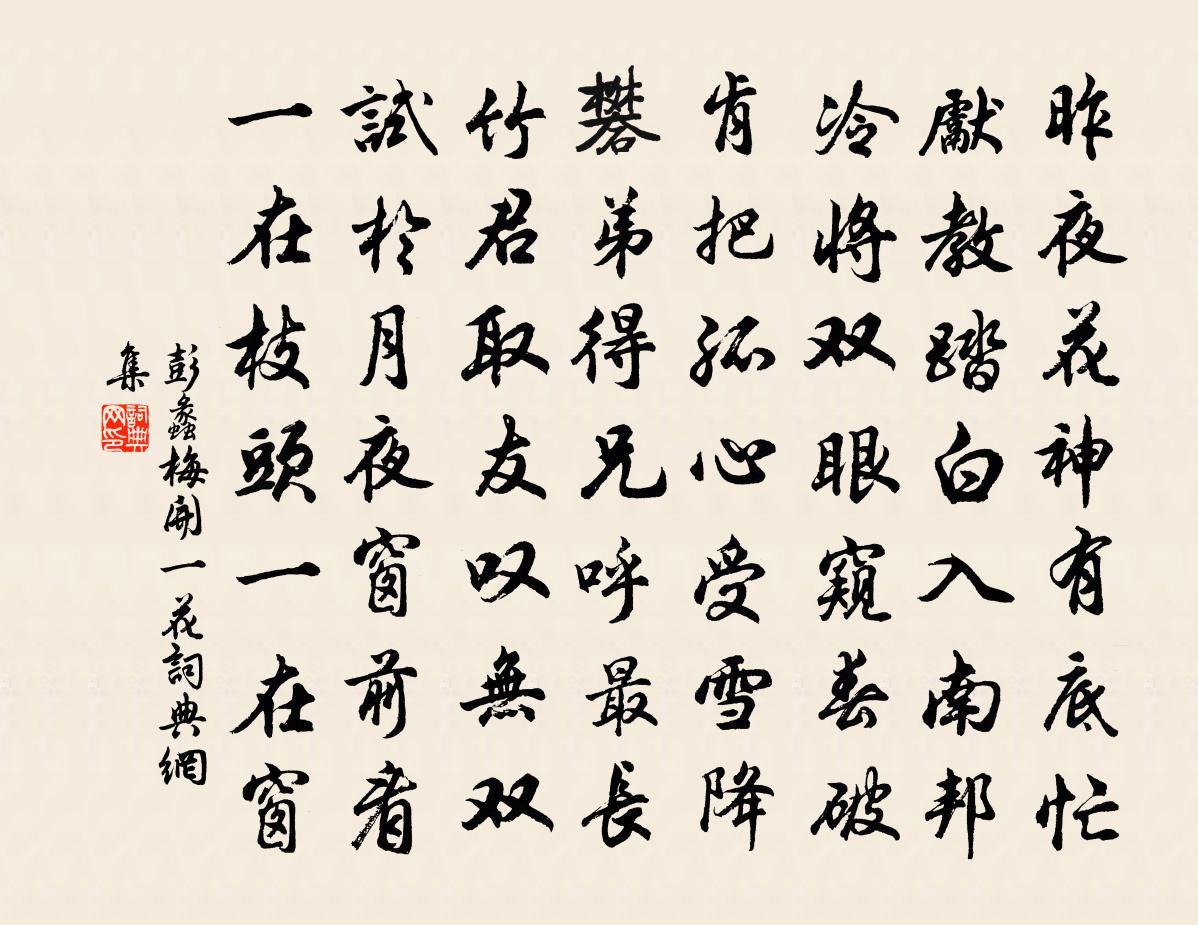 昨夜花神有底忙
獻教踏白入南邦
冷将双眼窺春破
肯把孤心受雪降
礬弟得兄呼最長
竹君取友叹無双
試於月夜窗前看
一在枝頭一在窗
彭蠡梅開一花詞典網
集
詞典网印